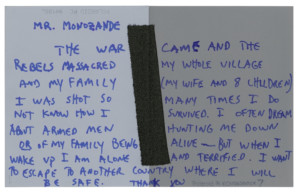 MR. MONOZANDE
THE WAR CAME AND THE
REBELS MASSACRED MY WHOLE VILLAGE
AND MY FAMILY (MY WIFE AND 8 CHILDREN)
I WAS SHOT SO MANY TIMES I DO
NOT KNOW HOW I SURVIVED. I OFTEN DREAM
ABUT ARMED MEN HUNTING ME DOWN
OR OF MY FAMILY BEING ALIVE — BUT WHEN I
WAKE UP I AM ALONE AND TERRIFIED. I WANT
TO ESCAPE TO ANOTHER COUNTRY WHERE I WILL
BE SAFE. THANK YOU